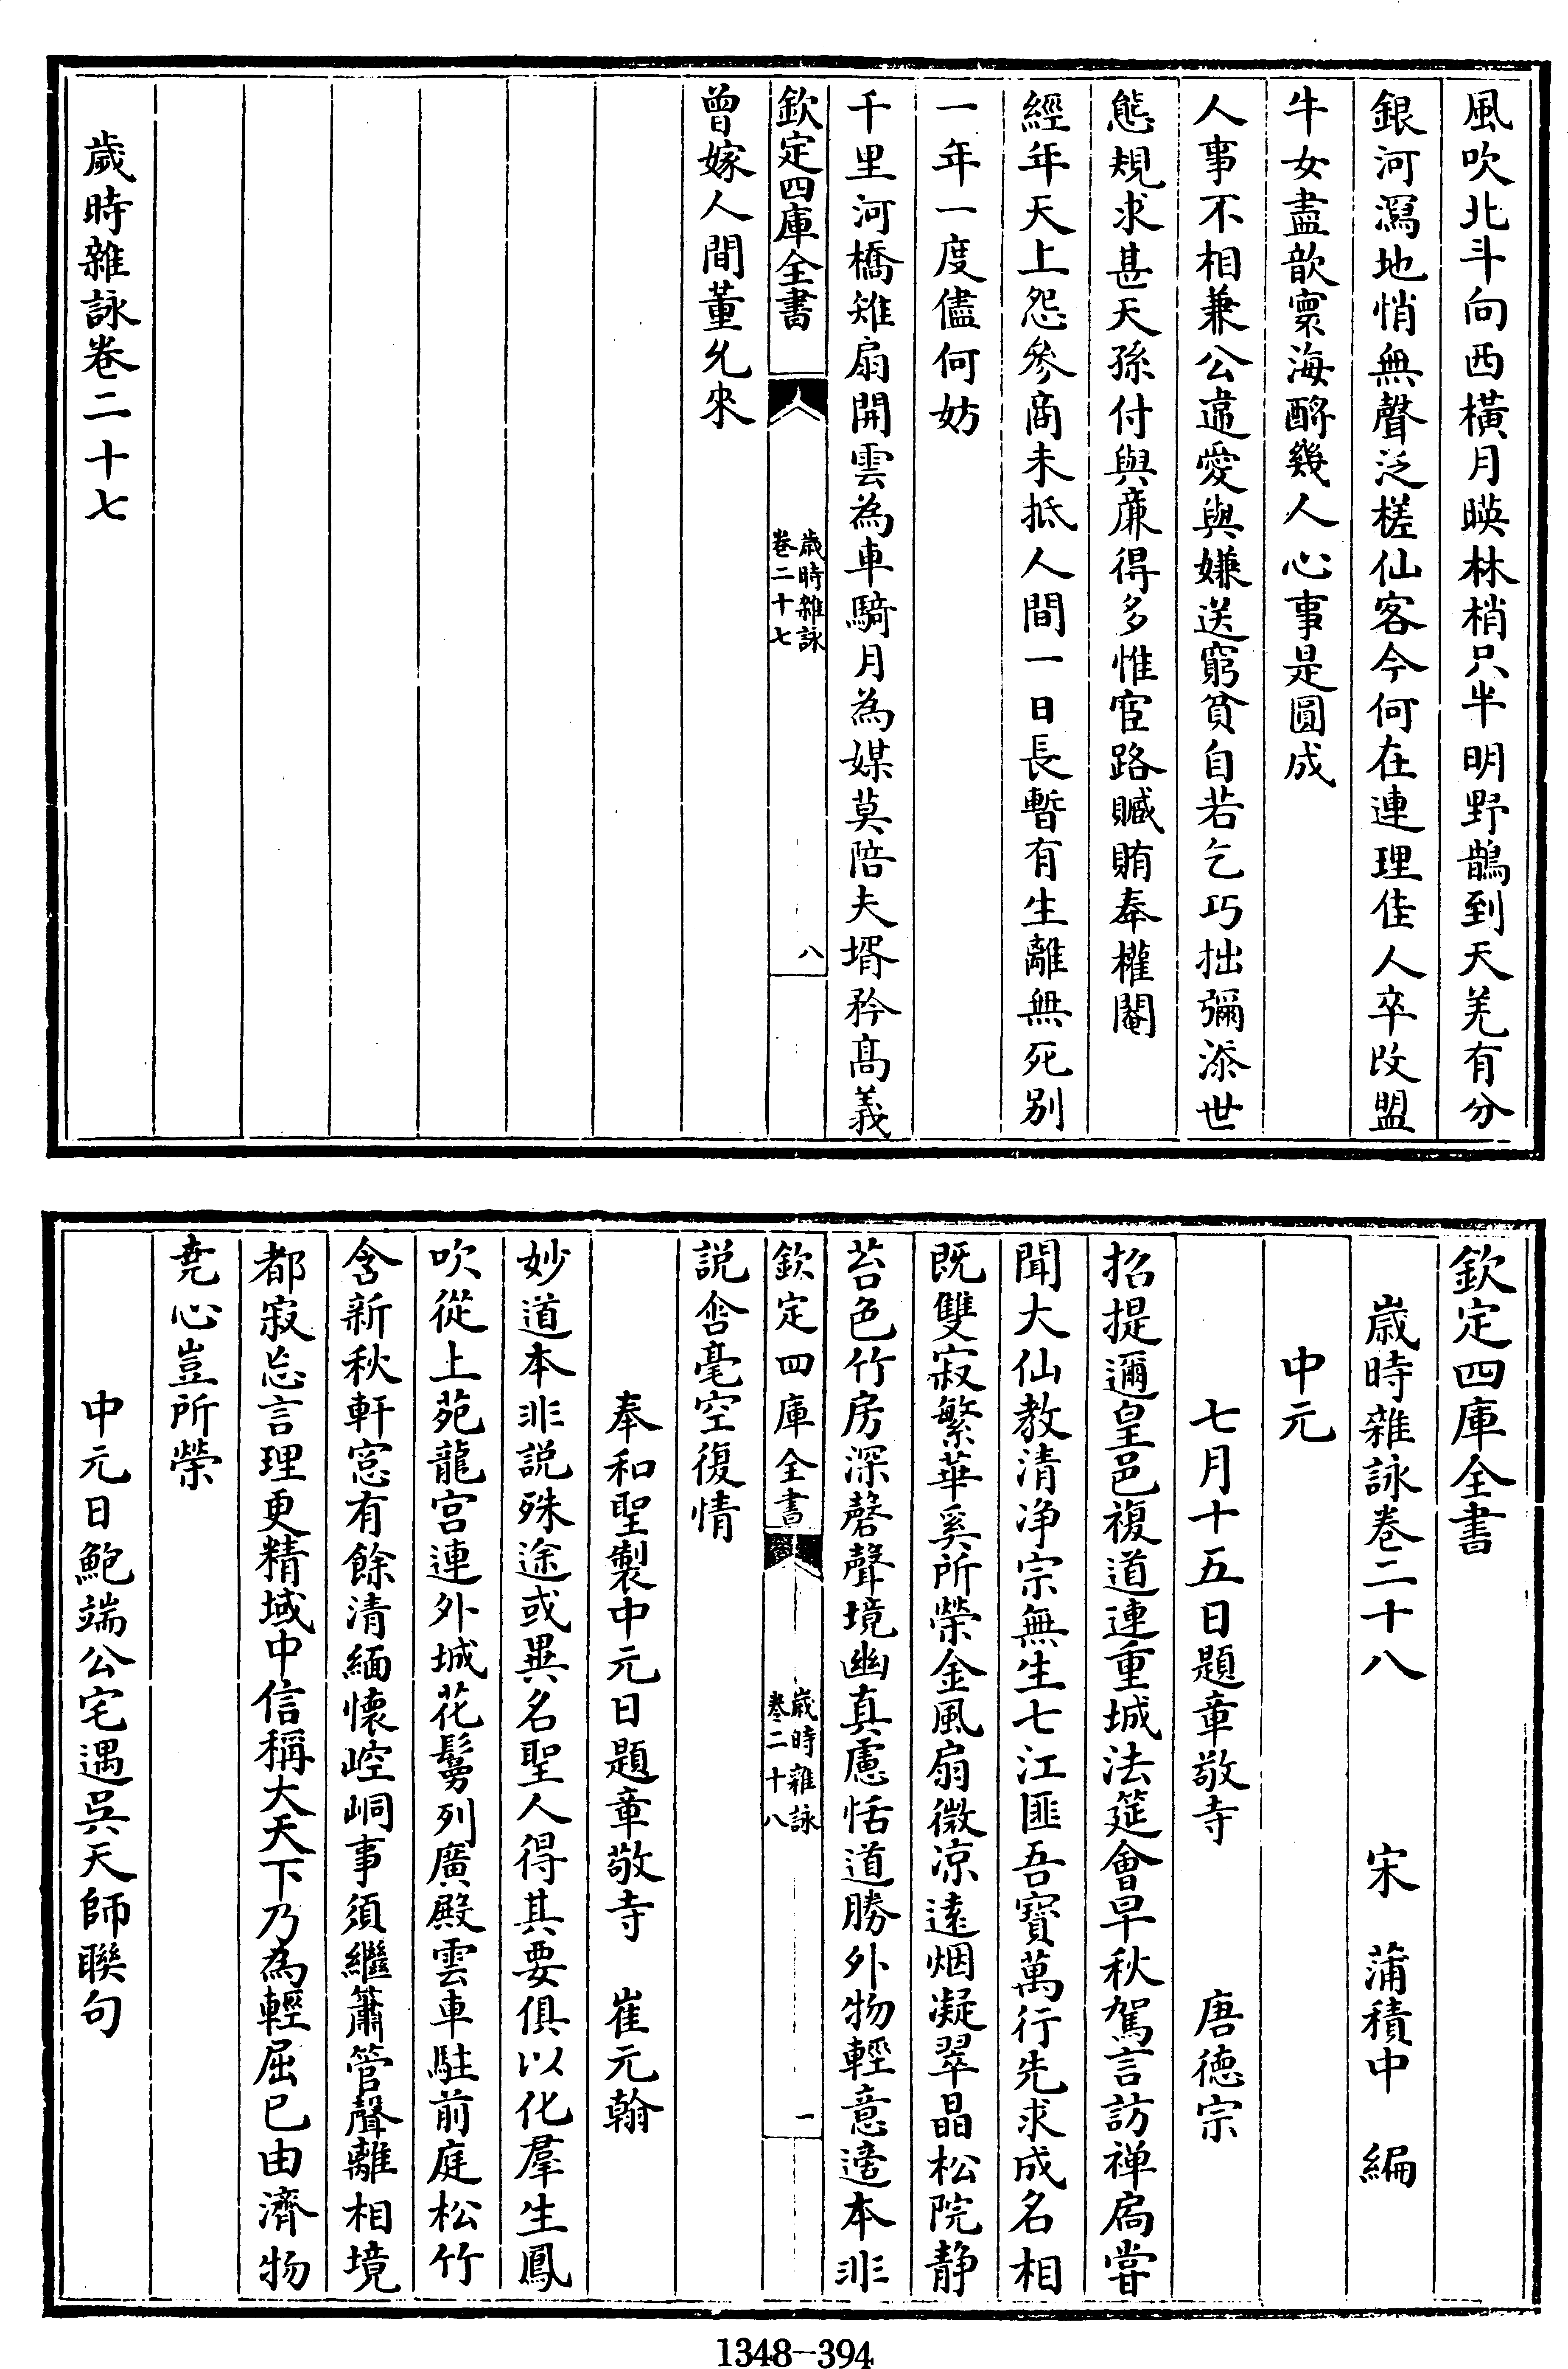 風吹北斗向西橫月暎林梢只半明野鵲到天羌有分
銀河瀉地悄無聲泛槎仙客今何在連理佳人卒改盟
牛女盡歆寰海酹幾人心事是圓成
人事不相兼公違愛與嫌送窮貧自若乞巧拙彌添世
態規求甚天孫付與廉得多惟宦路贓賄奉權閹
經年天上怨參商未抵人間一日長暫有生離無死别
一年一度儘何妨
千里河橋雉扇開雲為車騎月為媒莫陪夫壻矜髙義
欽定四庫全書
歲時雜詠
卷二十七
八
曾嫁人間董允來
歲時雜詠卷二十七
欽定四庫全書
歲時雜詠卷二十八 宋 蒲積中 編
中元
七月十五日題章敬寺 唐德宗
招提邇皇邑複道連重城法筵會早秋駕言訪禅扃甞
聞大仙教清净宗無生七江匪吾寶萬行先求成名相
既雙寂繁華奚所榮金風扇微凉逺烟凝翠晶松院静
苔色竹房深磬聲境幽真慮恬道勝外物輕意適本非
欽定四庫全書
歲時雜詠
卷二十八
一
説含毫空復情
奉和聖製中元日題章敬寺 崔元翰
妙道本非説殊途或異名聖人得其要俱以化羣生鳳
吹從上苑龍宫連外城花鬘列廣殿雲車駐前庭松竹
含新秋軒窓有餘清緬懷崆峒事須繼簫管聲離相境
都寂忘言理更精域中信稱大天下乃為輕屈已由濟物
堯心豈所榮
中元日鮑端公宅遇呉天師聯句
1348-394